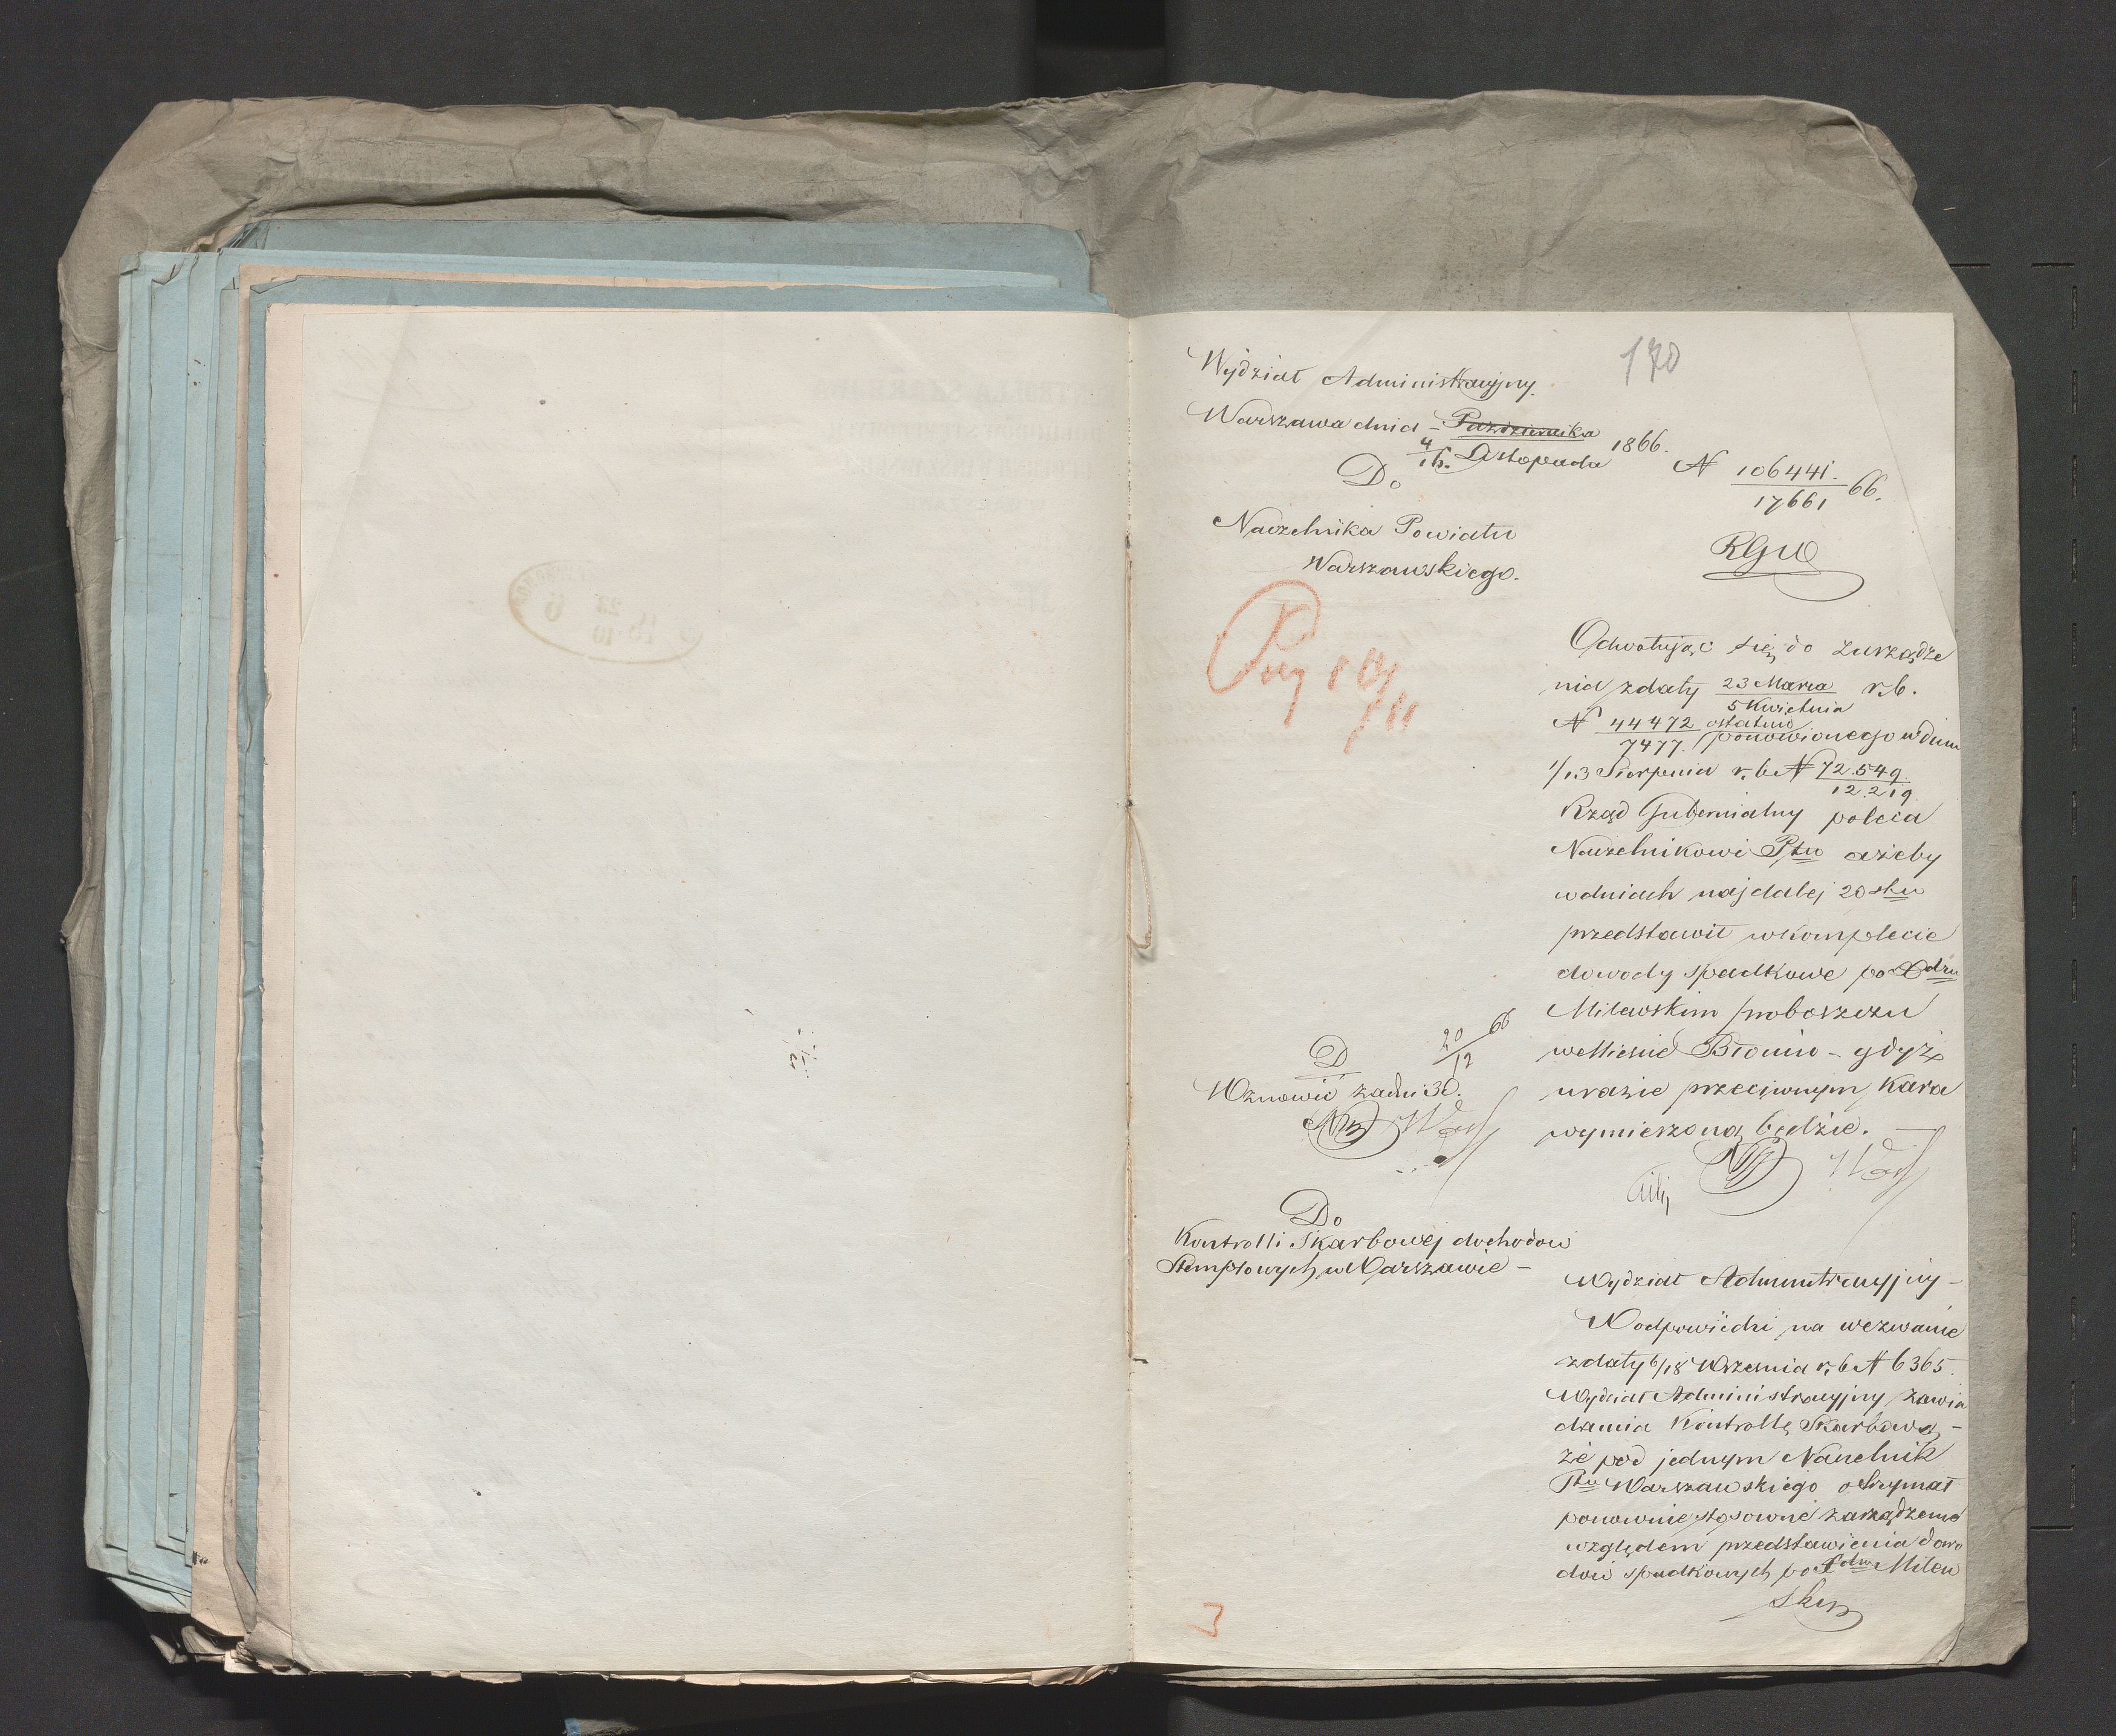 170
Wydział Administracyjny.
Warszawa dnia - Października
4/16. Listopada 1866.
N 106441./17661 66.
Do
Naczelnika Powiatu
Warszawskiego.
RGW
Odwołując się do zarządze
nia z daty 23 Marca/5 Kwietnia r.b.
N 44472/7477. ostatnio ponowionego w dniu
1/13 Sierpnia r.b. N 72.549/12.219
Rząd Gubernialny poleca
Naczelnikowi Ptu ażeby
w dniach najdalej 20stu
przedstawił w komplecie
dowody spadkowe po Xdzu
Milewskim proboszczu
w Mieście Błoniu - gdyż
w razie przeciwnym kara
wymierzoną będzie. -
D 20/12 66
Wznowić za dni 30.
Do
Kontrolli Skarbowej dochodów
Stemplowych w Warszawie -
Wydział Administracyjny -
W odpowiedzi na wezwanie
z daty 6/18 Września r.b. N 6365.
Wydział Administracyjny zawia
damia Kontrollę Skarbową -
że pod jednym Naczelnik
Ptu Warszawskiego otrzymał
ponownie stosowne zarządzenie
względem przedstawienia dowo
dów spadkowych po Xdzu Milew
skim
3